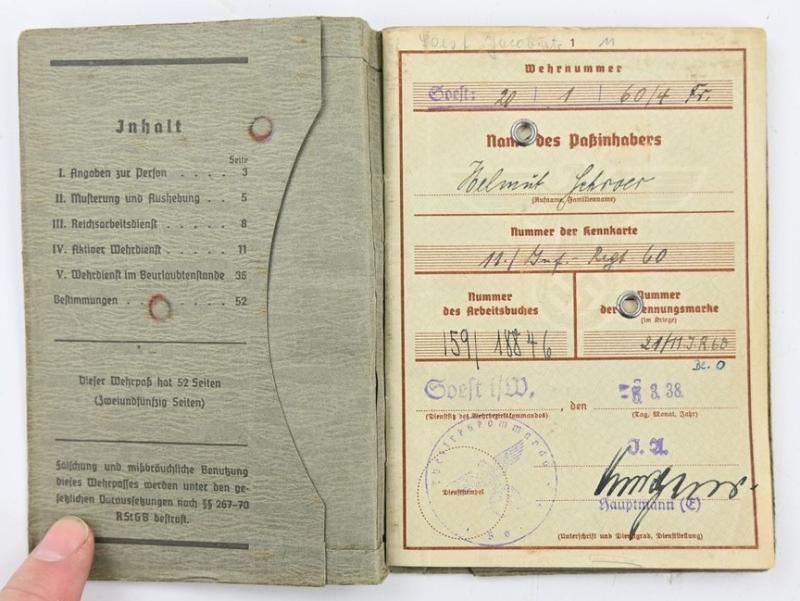 Inhalt
Seite
I. Angaben zur Person . . . . . 3
II. Musterung und Aushebung . . 5
III. Reichsarbeitsdienst . . . . . 8
IV. Aktiver Wehrdienst . . . . . 11
V. Wehrdienst im Beurlaubtenstande 36
Bestimmungen . . . . . . . . 52
Dieser Wehrpaß hat 52 Seiten
(Zweiundfünfzig Seiten)
Fälschung und mißbräuchliche Benutzung
dieses Wehrpasses werden unter den ge-
setzlichen Voraussetzungen nach §§ 267–70
RStGB bestraft.
1 11
Wehrnummer
Soest: 20 | 1 | 60/4 Fr.
Name des Paßinhabers
Helmut Schroer
(Rufname, Familienname)
Nummer der Kennkarte
11./ Inf.-Regt 60
Nummer
des Arbeitsbuches
159/18846
Nummer
der Erkennungsmarke
(im Kriege)
21/11 J.R 60
Bl. O
Soest i/W. , den 3. 38.
(Dienstsitz des Wehrbezirkkommandos) (Tag, Monat, Jahr)
Dienststempel
J. A.
Hauptmann (E)
(Unterschrift und Dienstgrad, Dienststellung)